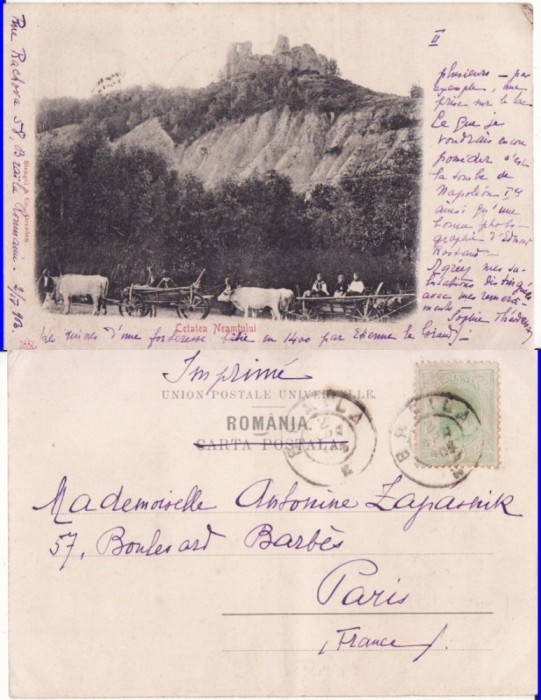 Rue Rachova 58, Braïla Roumanie. 2/IV 903
II
plusieurs – par
exemple, une
prise sur le lac
Ce que je
voudrais encore
posséder c'est
la tombe de
Napoléon Ier
ainsi qu'une
bonne photo-
graphie d'Edmond
Rostand
Agréez mes sa-
lutations distinguées
avec mes remercî-
ments
Sophie
Cetatea Neamtului
Les ruines d'une forteresse bâtie en 1400 par Etienne le Grand
Imprimé
UNION POSTALE UNIVERSELLE.
ROMÂNIA.
CARTA POSTALA
BRAILA
BRAILA
Mademoiselle Antonine Zapasnik
57, Boulevard Barbès
Paris
(France).